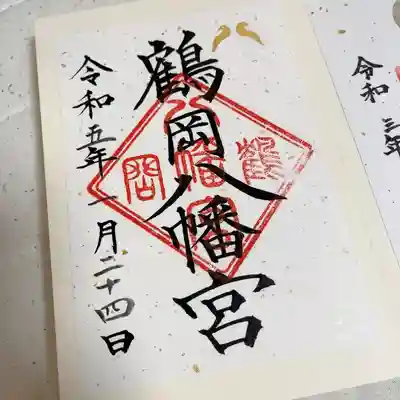 鶴岡八幡宮
令和五年一月二十四日
令和三年